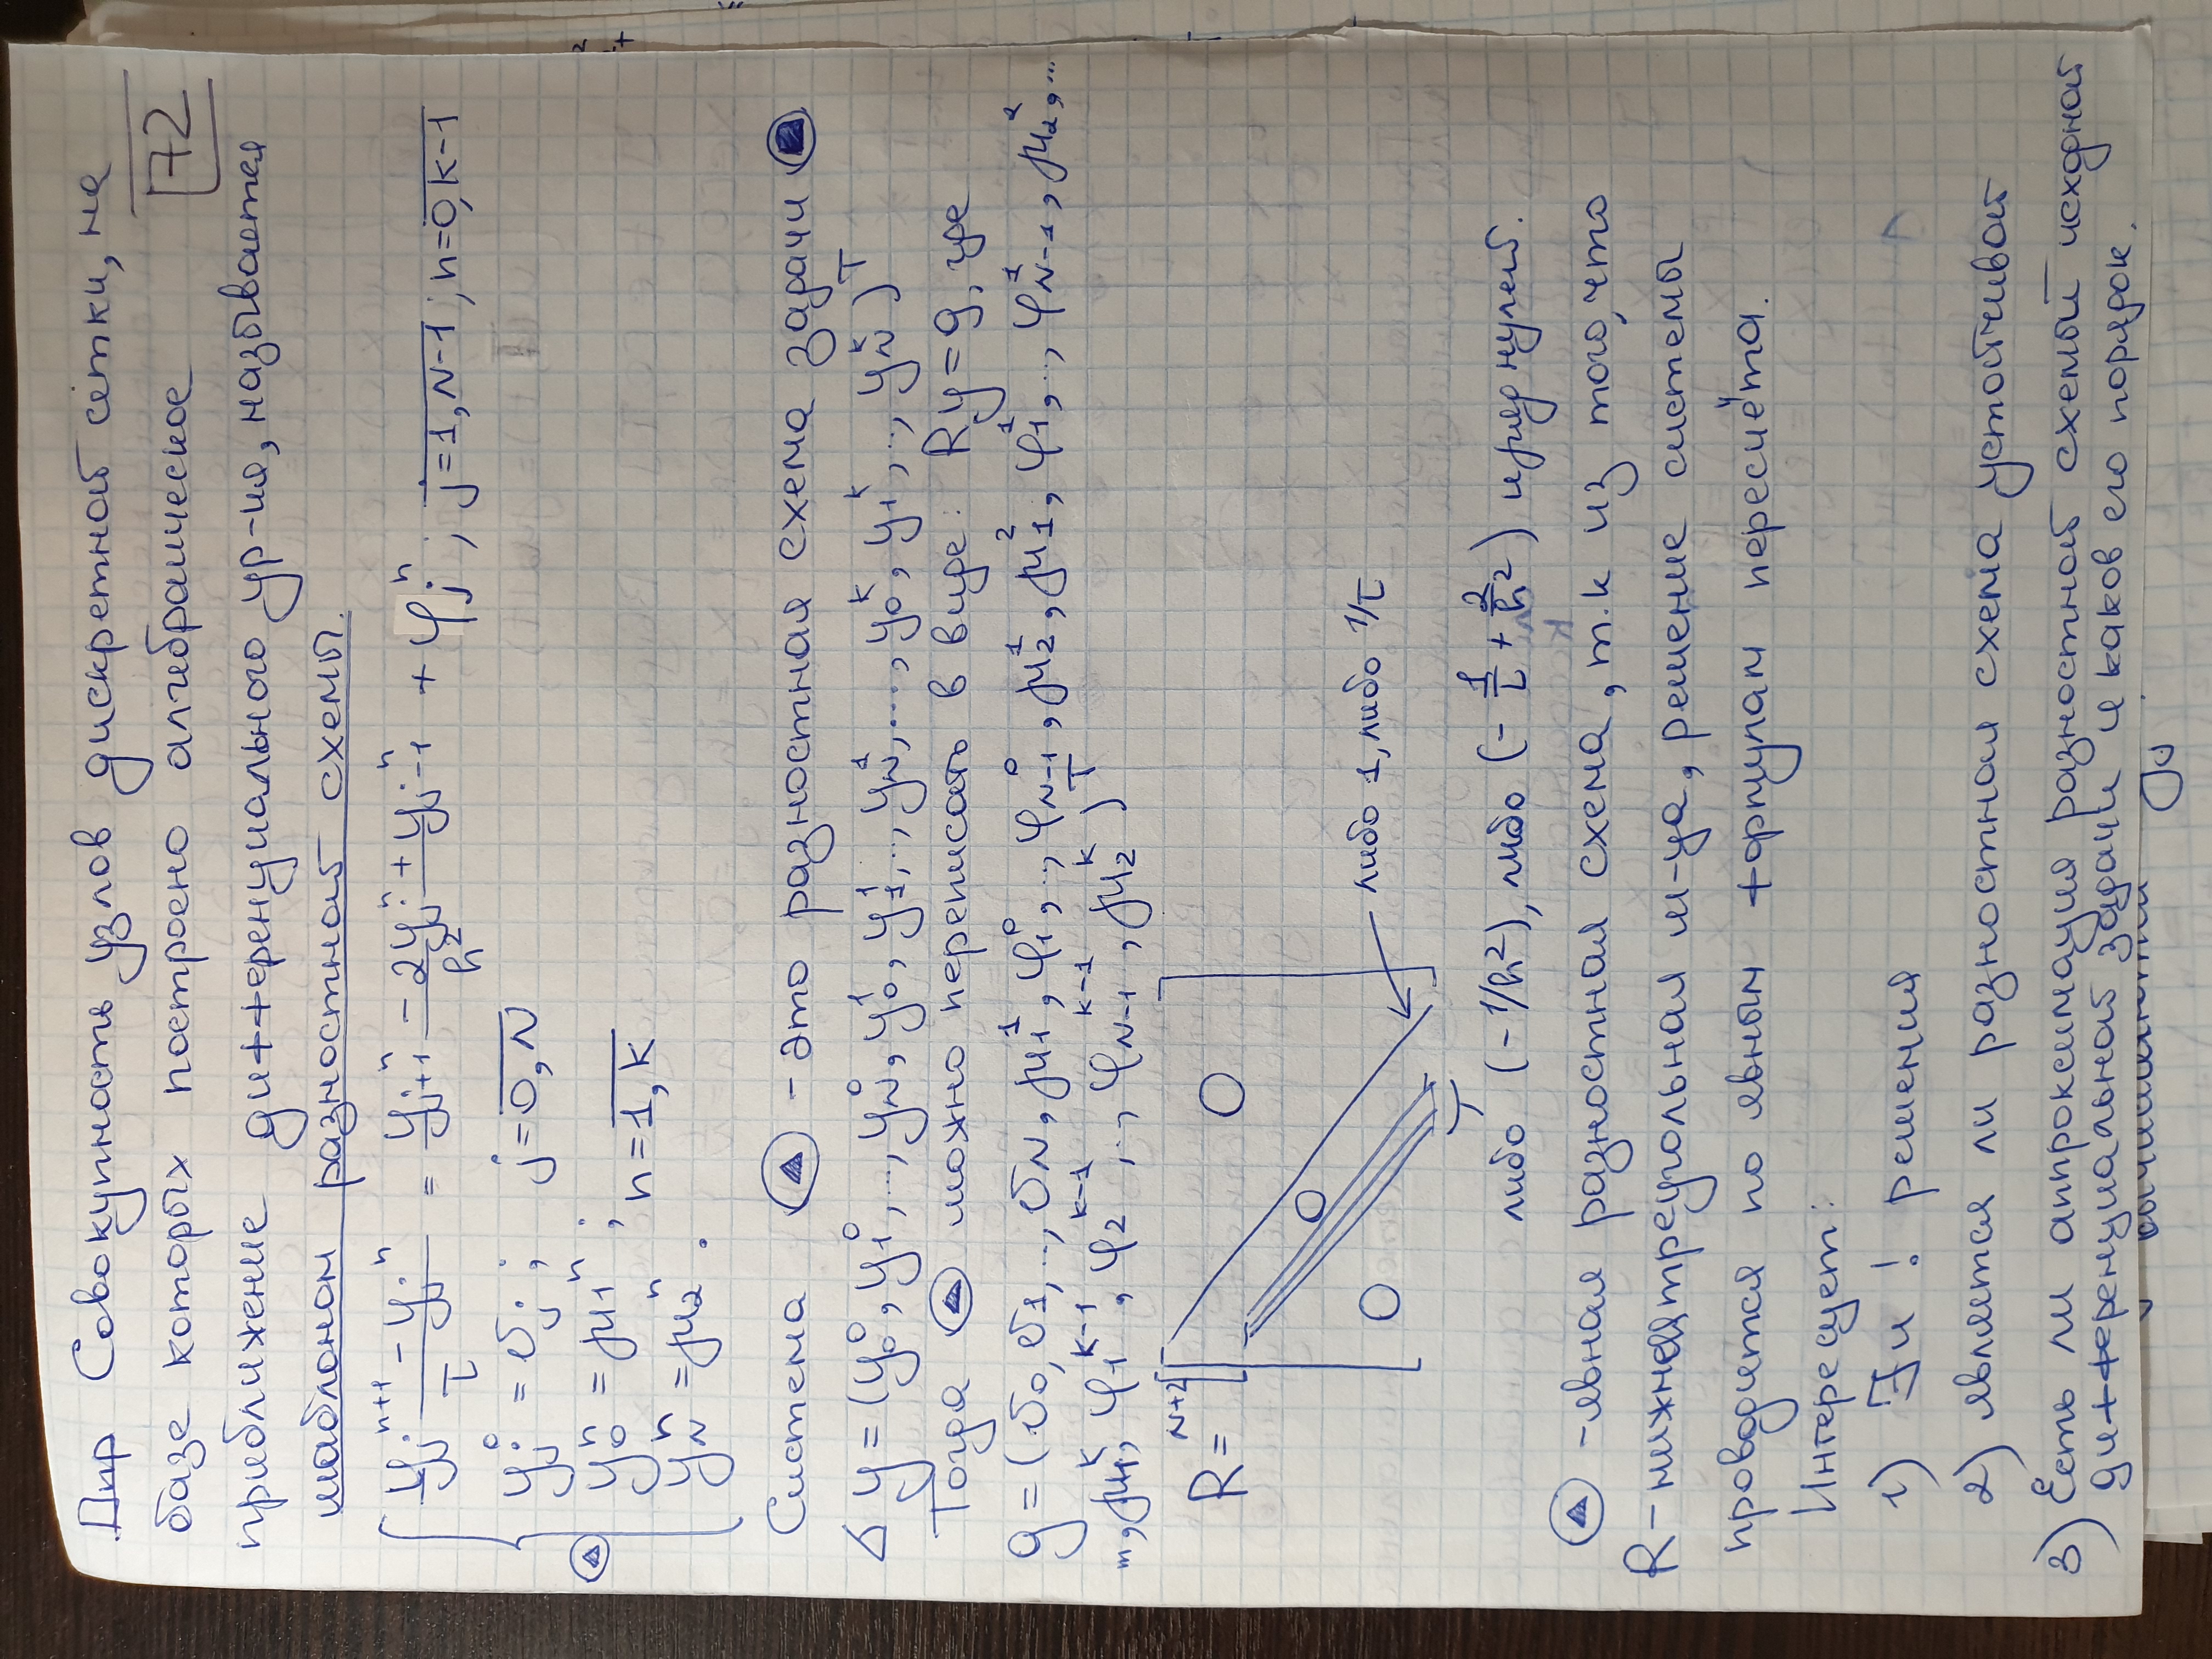 72
Опр Совокупность узлов дискретной сетки, на
базе которых построено алгебраическое
приближение дифференциального ур-ия, называется
шаблоном разностной схемы.
(y_j^{n+1} - y_j^n)/τ = (y_{j+1}^n - 2y_j^n + y_{j-1}^n)/h^2 + φ_j^n ; j=1,N-1 ; n=0,k-1
y_j^0 = σ_j ; j=0,N
y_0^n = μ_1^n ; n=1,k
y_N^n = μ_2^n.
Система ▲ - это разностная схема задачи
Δ y=(y_0^0, y_1^0, ..., y_N^0, y_0^1, y_1^1, ..., y_N^1, ..., y_0^k, y_1^k, ..., y_N^k)^T
Тогда ▲ можно переписать в виде: Ry=g, где
g=(σ_0, σ_1, ..., σ_N, μ_1^1, φ_1^0, ..., φ_{N-1}^0, μ_2^1, μ_1^2, φ_1^1, ..., φ_{N-1}^1, μ_2^2, ...
..., μ_1^k, φ_1^{k-1}, φ_2^{k-1}, ..., φ_{N-1}^{k-1}, μ_2^k)^T
R= N+2 0 0 0
либо 1, либо 1/τ
либо (-1/h^2), либо (-1/τ + 2/h^2) и ряд нулей.
▲ - явная разностная схема, т.к из того, что
R-нижнетреугольная м-ца, решение системы
проводится по явным формулам пересчёта.
Интересует:
1) ∃ и ! решения
2) является ли разностная схема устойчивой
3) Есть ли аппроксимация разностной схемы исходной
дифференциальной задачи и каков его порядок.